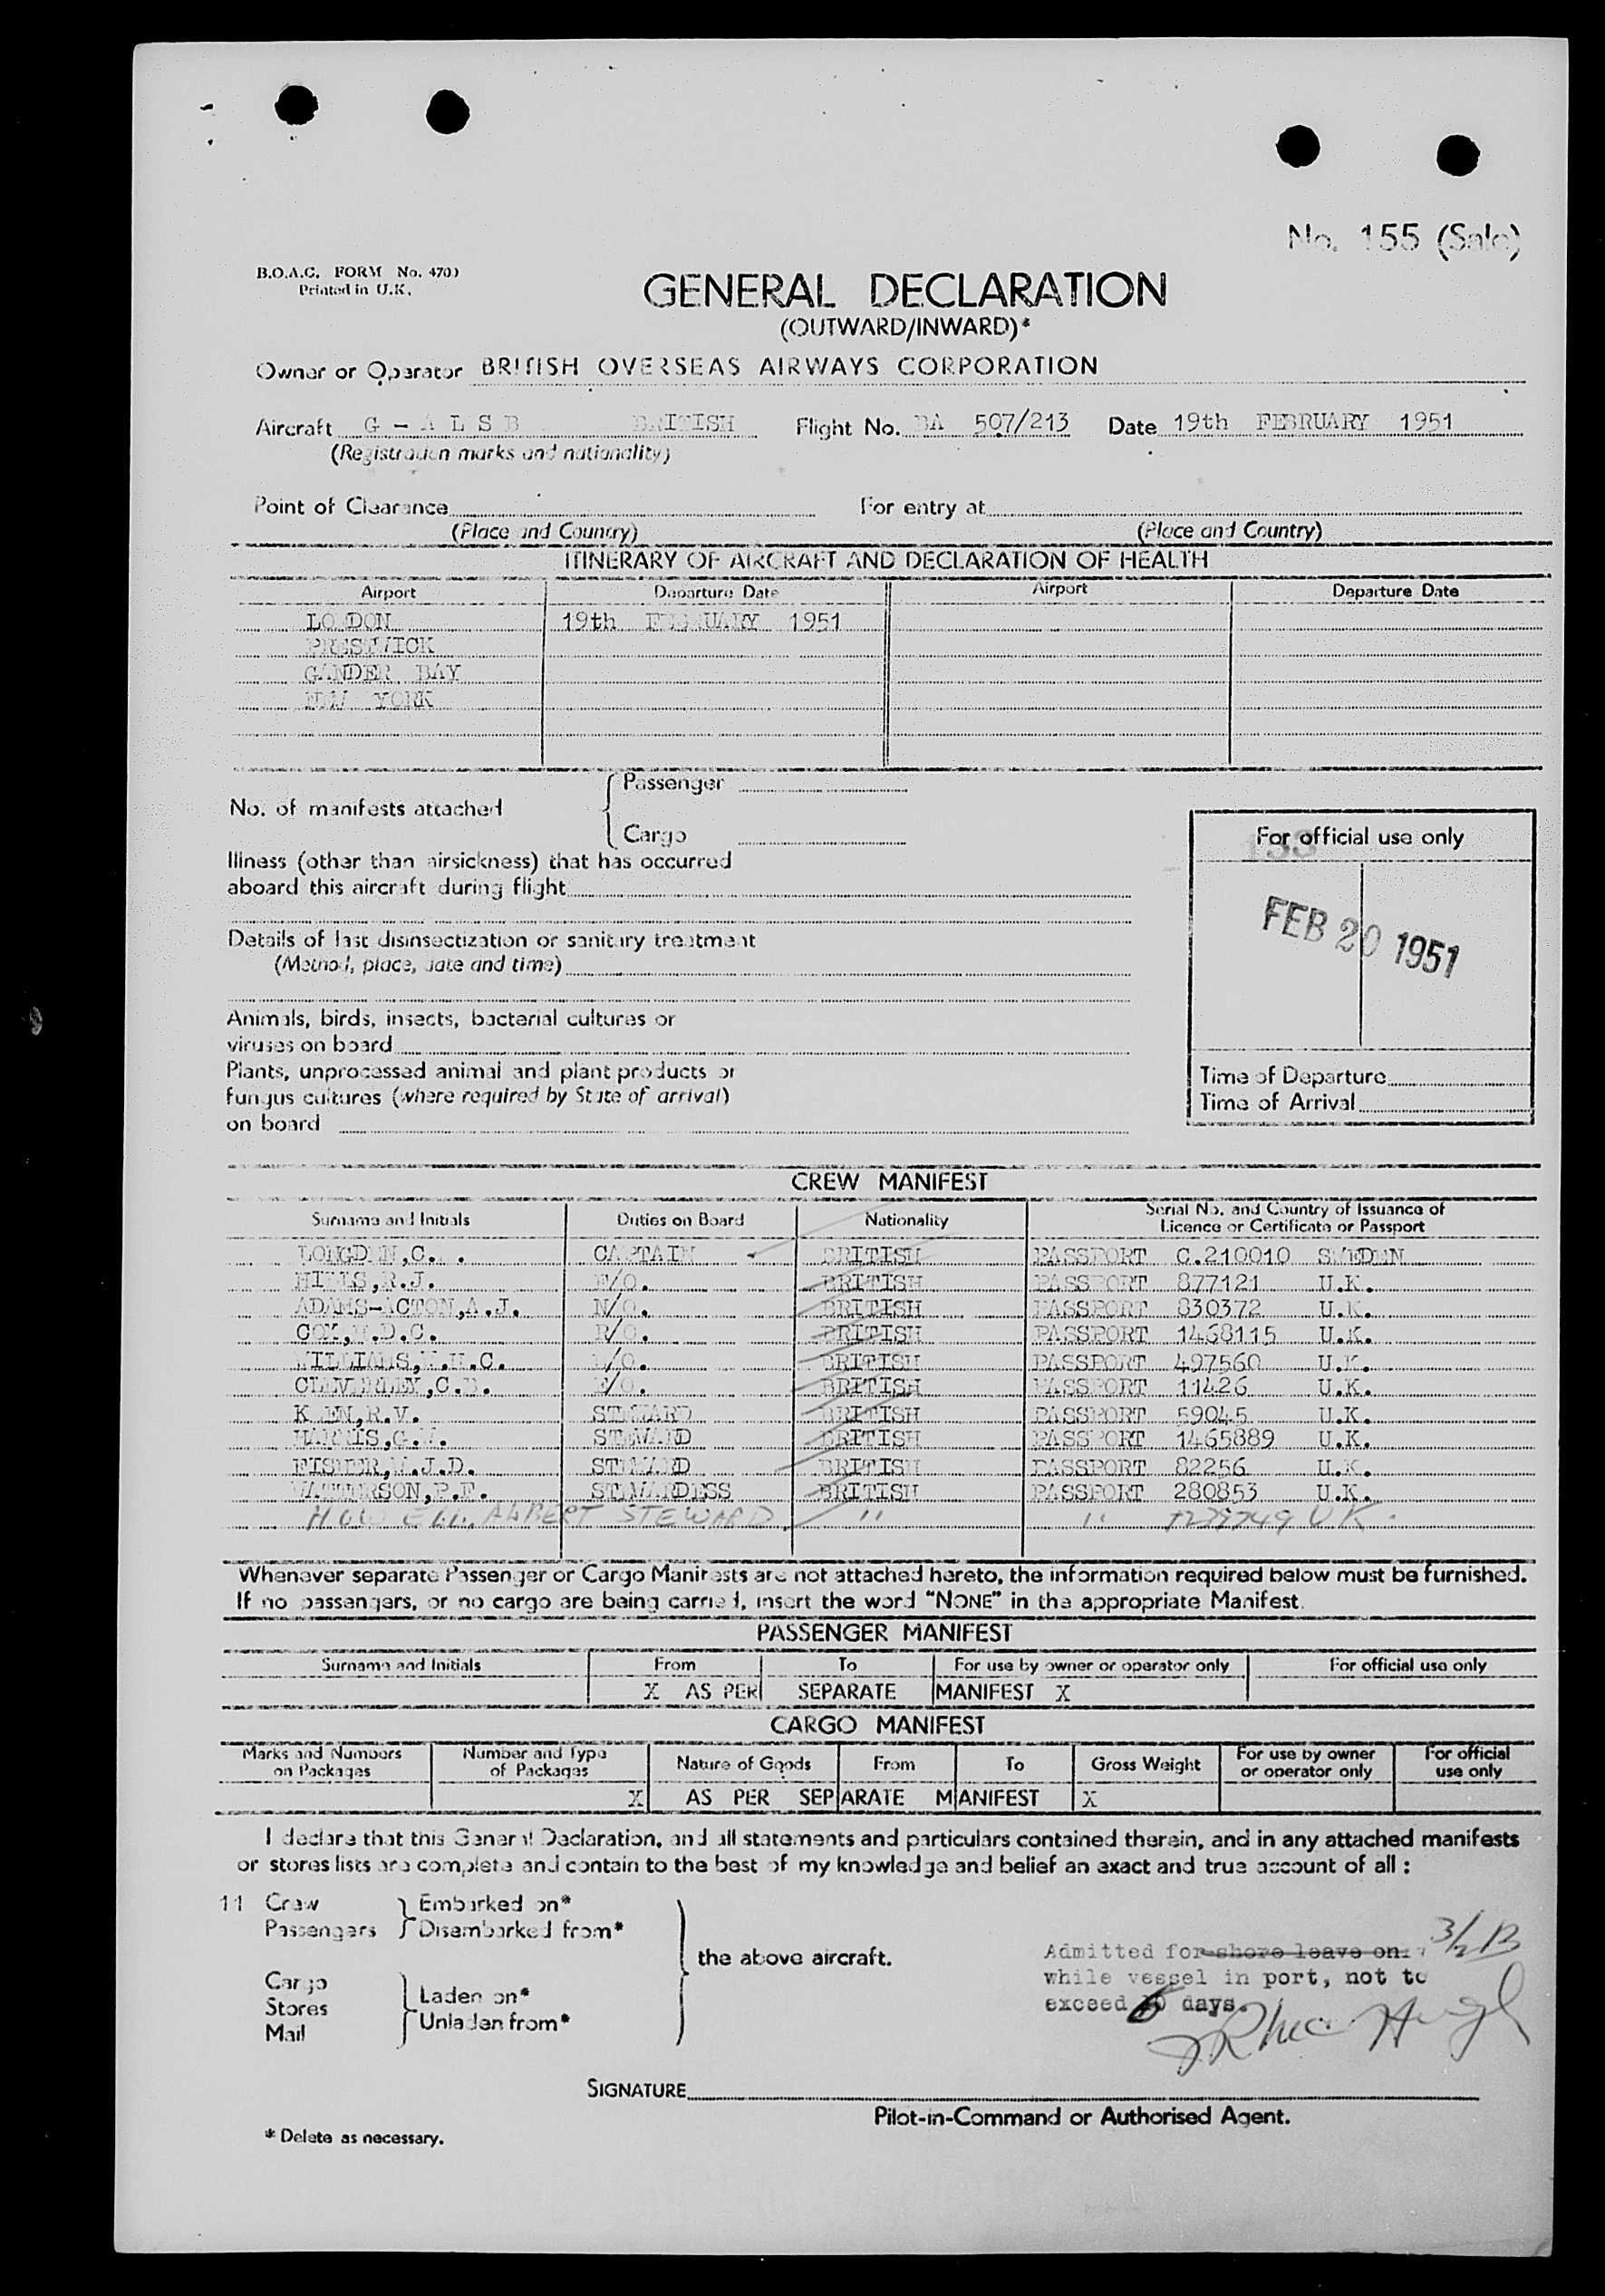 No. 155 (Sale)
B.O.A.C. FORM No. 470
Printed in U.K.
GENERAL DECLARATION
(OUTWARD/INWARD)*
Owner or Operator BRITISH OVERSEAS AIRWAYS CORPORATION
Aircraft G - A L S B BRITISH Flight No. BA 507/213 Date 19th FEBRUARY 1951
(Registration marks and nationality)
Point of Clearance For entry at
(Place and Country) (Place and Country)
ITINERARY OF AIRCRAFT AND DECLARATION OF HEALTH
Airport Departure Date Airport Departure Date
LONDON 19th FEBRUARY 1951
PRESTWICK
GANDER BAY
NEW YORK
Passenger
No. of manifests attached
Cargo
For official use only
Illness (other than airsickness) that has occurred
aboard this aircraft during flight
FEB 20 1951
Details of last disinsectization or sanitary treatment
(Method, place, date and time)
Animals, birds, insects, bacterial cultures or
viruses on board
Plants, unprocessed animal and plant products or
fungus cultures (where required by State of arrival)
on board
Time of Departure
Time of Arrival
CREW MANIFEST
Surname and Initials Duties on Board Nationality Serial No. and Country of Issuance of
Licence or Certificate or Passport
LONGDEN,C. CAPTAIN BRITISH PASSPORT C.210010 SWEDEN
HILLS,R.J. F/O. BRITISH PASSPORT 877121 U.K.
ADAMS-ACTON,A.J. N/O. BRITISH PASSPORT 830372 U.K.
COX, .D.C. R/O. BRITISH PASSPORT 1468115 U.K.
WILLIAMS, .H.C. /O. BRITISH PASSPORT 497560 U.K.
CLAVERLEY,C. . /O. BRITISH PASSPORT 11426 U.K.
KEEN,R.V. STEWARD BRITISH PASSPORT 59045 U.K.
HARRIS,G. . STEWARD BRITISH PASSPORT 1465889 U.K.
FISHER, .J.D. STEWARD BRITISH PASSPORT 82256 U.K.
WATTERSON,P.F. STEWARDESS BRITISH PASSPORT 280853 U.K.
ALBERT STEWARD " " UK.
Whenever separate Passenger or Cargo Manifests are not attached hereto, the information required below must be furnished.
If no passengers, or no cargo are being carried, insert the word "NONE" in the appropriate Manifest.
PASSENGER MANIFEST
Surname and Initials From To For use by owner or operator only For official use only
X AS PER SEPARATE MANIFEST X
CARGO MANIFEST
Marks and Numbers on Packages Number and Type of Packages Nature of Goods From To Gross Weight For use by owner or operator only For official use only
X AS PER SEPARATE MANIFEST X
I declare that this General Declaration, and all statements and particulars contained therein, and in any attached manifests
or stores lists are complete and contain to the best of my knowledge and belief an exact and true account of all :
11 Crew Embarked on*
Passengers Disembarked from*
the above aircraft.
Cargo
Stores Laden on*
Mail Unladen from*
Admitted for shore leave only
while vessel in port, not to
exceed days.
SIGNATURE
Pilot-in-Command or Authorised Agent.
* Delete as necessary.